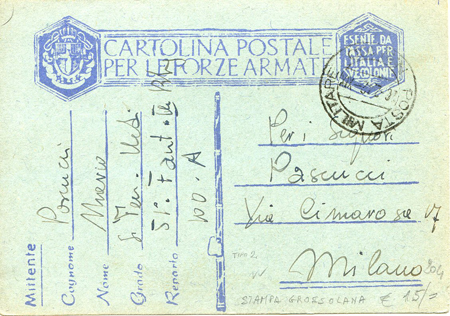 CARTOLINA POSTALE
PER LE FORZE ARMATE
ESENTE DA
TASSA PER
L'ITALIA E
POSTA MILITARE
Mittente
Cognome Pascucci
Nome
Grado S. Ten.
Reparto 51° Fant.
Per i signori
Pascucci
Via Cimarosa 17
Milano
TIPO 2
STAMPA GROSSOLANA € 15/=